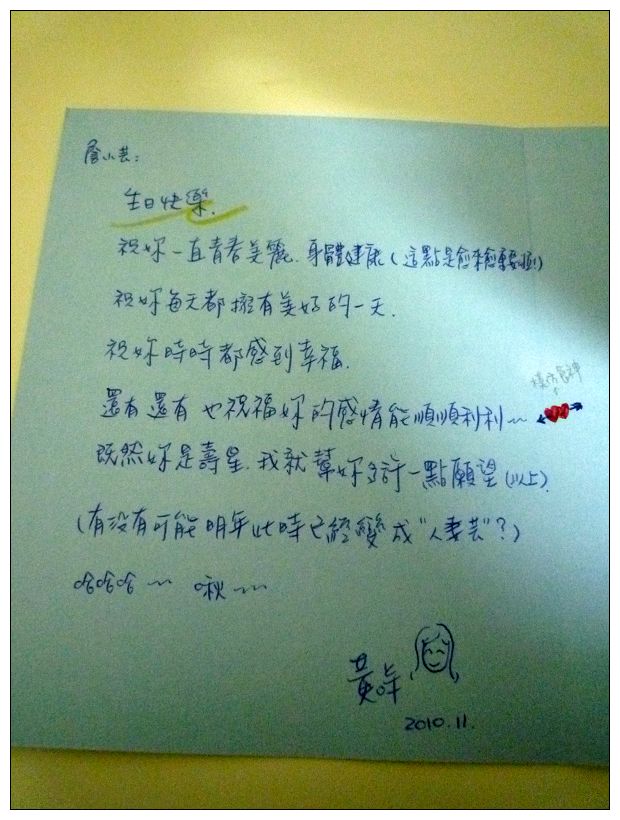 小芸:
生日快樂.
祝妳一直青春美麗.身體健康(這點是愈來愈重要啦!)
祝妳每天都擁有美好的一天.
祝妳時時都感到幸福.
還有還有 也祝福妳的感情能順順利利~
既然妳是壽星.我就幫妳多許一點願望(以上).
(有沒有可能明年此時已經變成"人妻芸"?)
哈哈哈~ 啾~~
黃
2010.11.